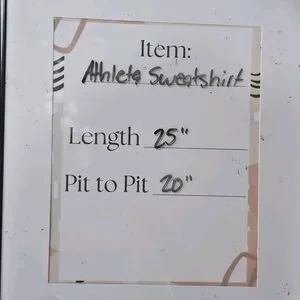 Item:
Athleta Sweatshirt
Length 25"
Pit to Pit 20"